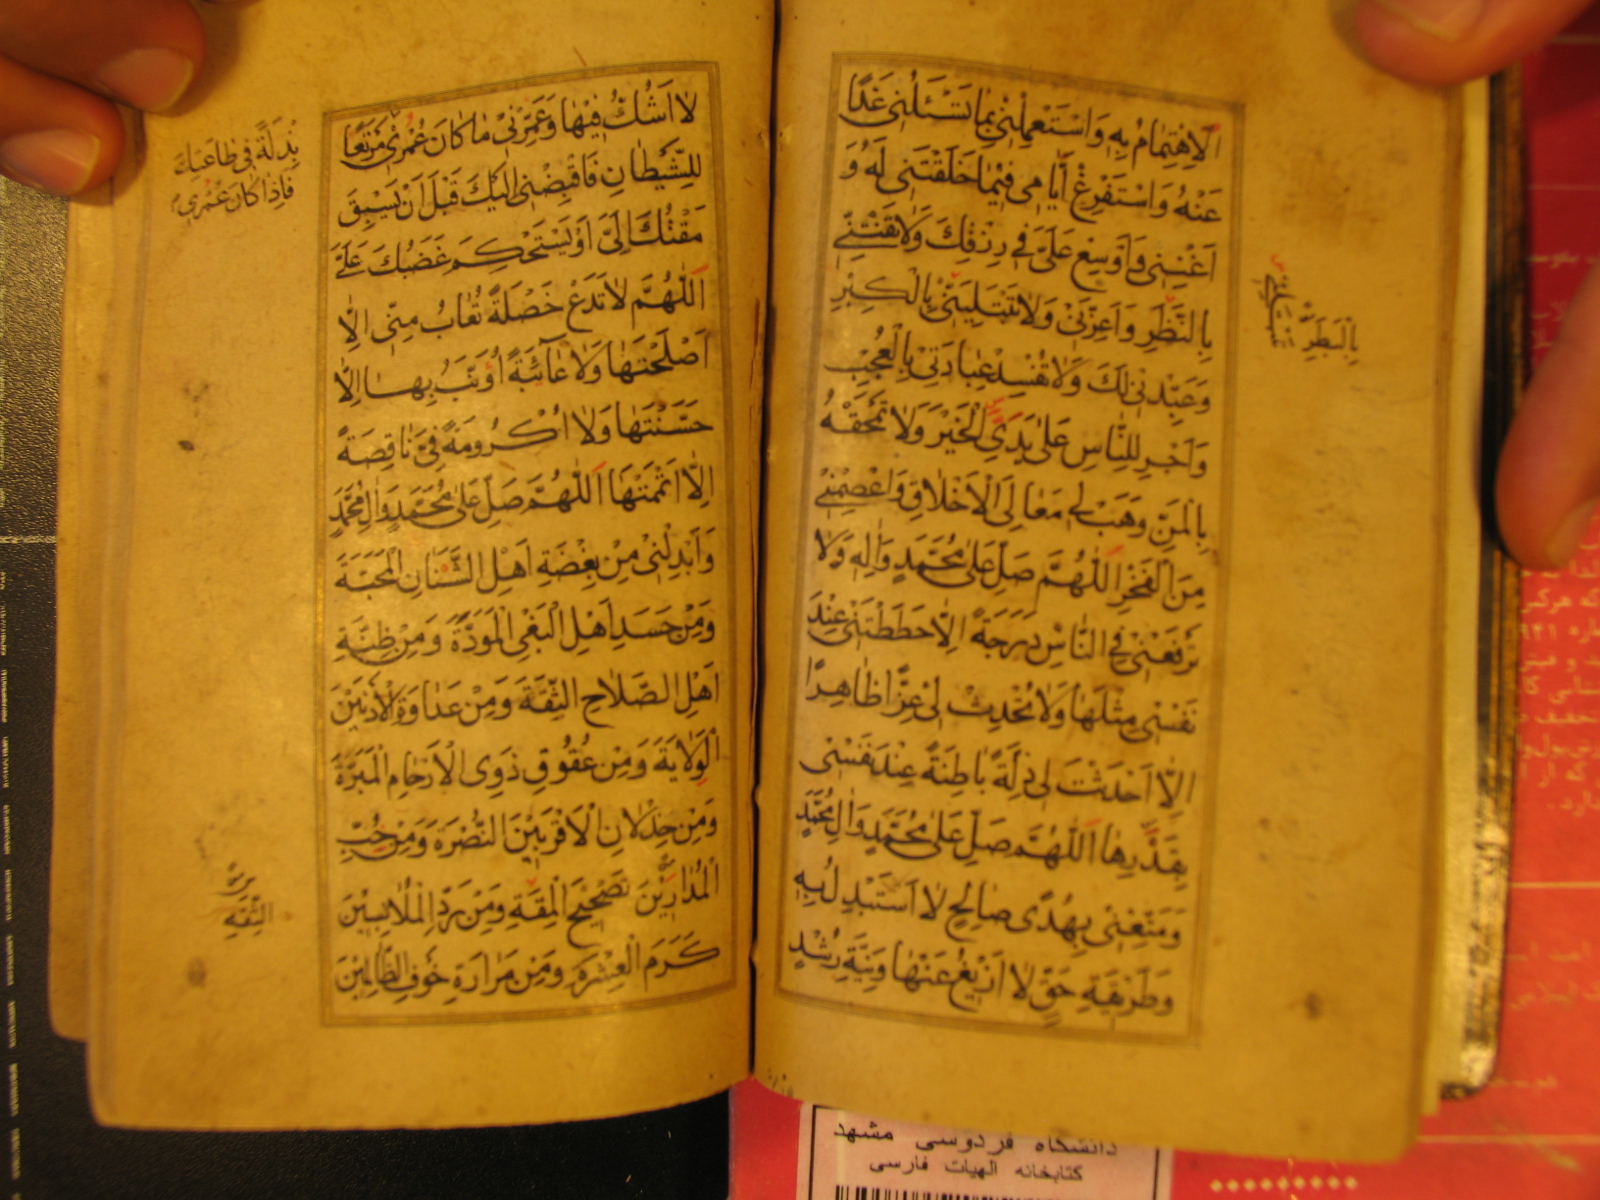 الاِهْتِمامُ بِهِ وَاسْتَعْمِلْنى بِما تَسْئَلُنى غَدًا
عَنْهُ وَاسْتَفْرِغْ اَيّامى فيما خَلَقْتَنى لَهُ وَ
اَغْنِنى وَاَوْسِعْ عَلَىَّ فى رِزْقِكَ وَلا تَفْتِنّى
بِالنَّظَرِ وَاَعِزَّنى وَلا تَبْتَلِيَنّى بِالْكِبْرِ
وَعَبِّدْنى لَكَ وَلا تُفْسِدْ عِبادَتى بِالْعُجْبِ
وَاَجْرِ لِلنّاسِ عَلى يَدَىَّ الْخَيْرَ وَلا تَمْحَقْهُ
بِالْمَنِّ وَهَبْ لى مَعالِىَ الْاَخْلاقِ وَاعْصِمْنى
مِنَ الْفَخْرِ اَللّٰهُمَّ صَلِّ عَلى مُحَمَّدٍ وَالِهِ وَلا
تَرْفَعْنى فِى النّاسِ دَرَجَةً اِلّا حَطَطْتَنى عِنْدَ
نَفْسى مِثْلَها وَلا تُحْدِثْ لى عِزًّا ظاهِرًا
اِلّا اَحْدَثْتَ لى ذِلَّةً باطِنَةً عِنْدَ نَفْسى
بِقَدَرِها اَللّٰهُمَّ صَلِّ عَلى مُحَمَّدٍ وَالِ مُحَمَّدٍ
وَمَتِّعْنى بِهُدًى صالِحٍ لا اَسْتَبْدِلُ بِهِ
وَطَريقَةِ حَقٍّ لا اَزيغُ عَنْها وَنِيَّةِ رُشْدٍ
بِالْبَطَرِ
لا اَشُكُّ فيها وَعَمِّرْنى ما كانَ عُمُرى مَرْتَعًا
لِلشَّيْطانِ فَاقْبِضْنى اِلَيْكَ قَبْلَ اَنْ يَسْبِقَ
مَقْتُكَ اِلَىَّ اَوْ يَسْتَحْكِمَ غَضَبُكَ عَلَىَّ
اَللّٰهُمَّ لا تَدَعْ خَصْلَةً تُعابُ مِنّى اِلّا
اَصْلَحْتَها وَلا عآئِبَةً اُؤَنَّبُ بِها اِلّا
حَسَّنْتَها وَلا اُكْرُومَةً فِىَّ ناقِصَةً
اِلّا اَتْمَمْتَها اَللّٰهُمَّ صَلِّ عَلى مُحَمَّدٍ وَالِ مُحَمَّدٍ
وَاَبْدِلْنى مِنْ بِغْضَةِ اَهْلِ الشَّنَانِ الْمَحَبَّةَ
وَمِنْ حَسَدِ اَهْلِ الْبَغْىِ الْمَوَدَّةَ وَمِنْ ظِنَّةِ
اَهْلِ الصَّلاحِ الثِّقَةَ وَمِنْ عَداوَةِ الْاَدْنَيْنَ
الْوَلايَةَ وَمِنْ عُقُوقِ ذَوِى الْاَرْحامِ الْمَبَرَّةَ
وَمِنْ خِذْلانِ الْاَقْرَبينَ النُّصْرَةَ وَمِنْ حُبِّ
الْمُدارينَ تَصْحيحَ الْمِقَةِ وَمِنْ رَدِّ الْمُلابِسينَ
كَرَمَ الْعِشْرَةِ وَمِنْ مَرارَةِ خَوْفِ الظّالِمينَ
بِذْلَةً فى طاعَتِكَ
فَاِذا كانَ عُمْرى
الثِّقَةِ
دانشگاه فردوسی مشهد
کتابخانه الهیات فارسی